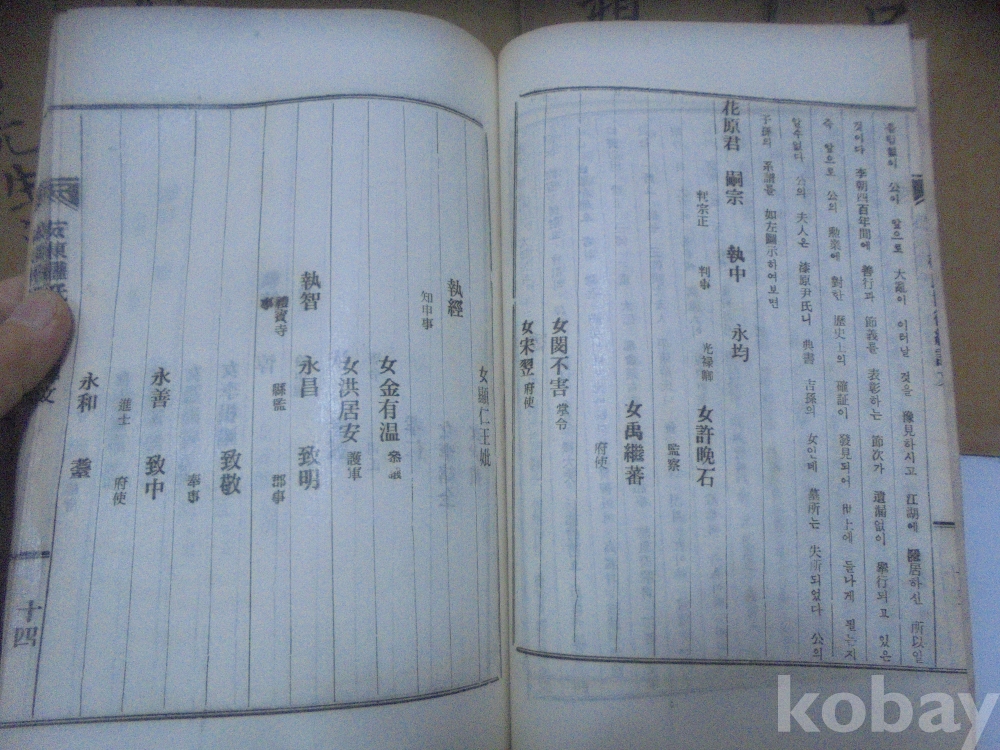 公이 앞으로 大亂이 이러날 것을 豫見하시고 江湖에 隱居하신 所以일
것이다 李朝四百年間에 善行과 節義를 表彰하는 節次가 遺漏없이 擧行되고 있은
즉 앞으로 公의 勳業에 對한 歷史上의 確証이 發見되어 世上에 들나게 될는지
알수없다 公의 夫人은 漆原尹氏니 典書 吉孫의 女인데 墓所는 失所되였다 公의
子孫의 系譜를 如左圖示하여보면
花原君 嗣宗 執中 永均
判宗正 判事 光祿卿
女許晩石
監察
女禹繼蕃
府使
女閔不害 掌令
女宋翌 府使
女顯仁王妣
執經
知申事
女金有温
女洪居安 護軍
執智 永昌 致明
禮賓寺事 縣監 郡事
致敬
奉事
永善 致中
進士 府使
永和 耋
十四
kobay